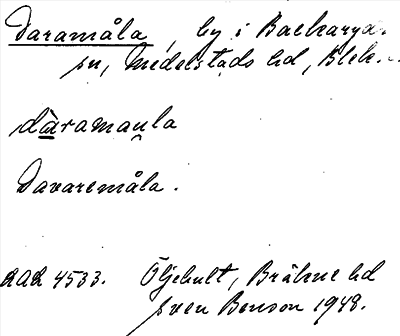 Daramåla, by i Backaryds
sn, Medelstads hd, Blek.
dàramaula
Davaremåla.
AAA 4533. Öljehult, Bräkne hd
Sven Benson 1948.